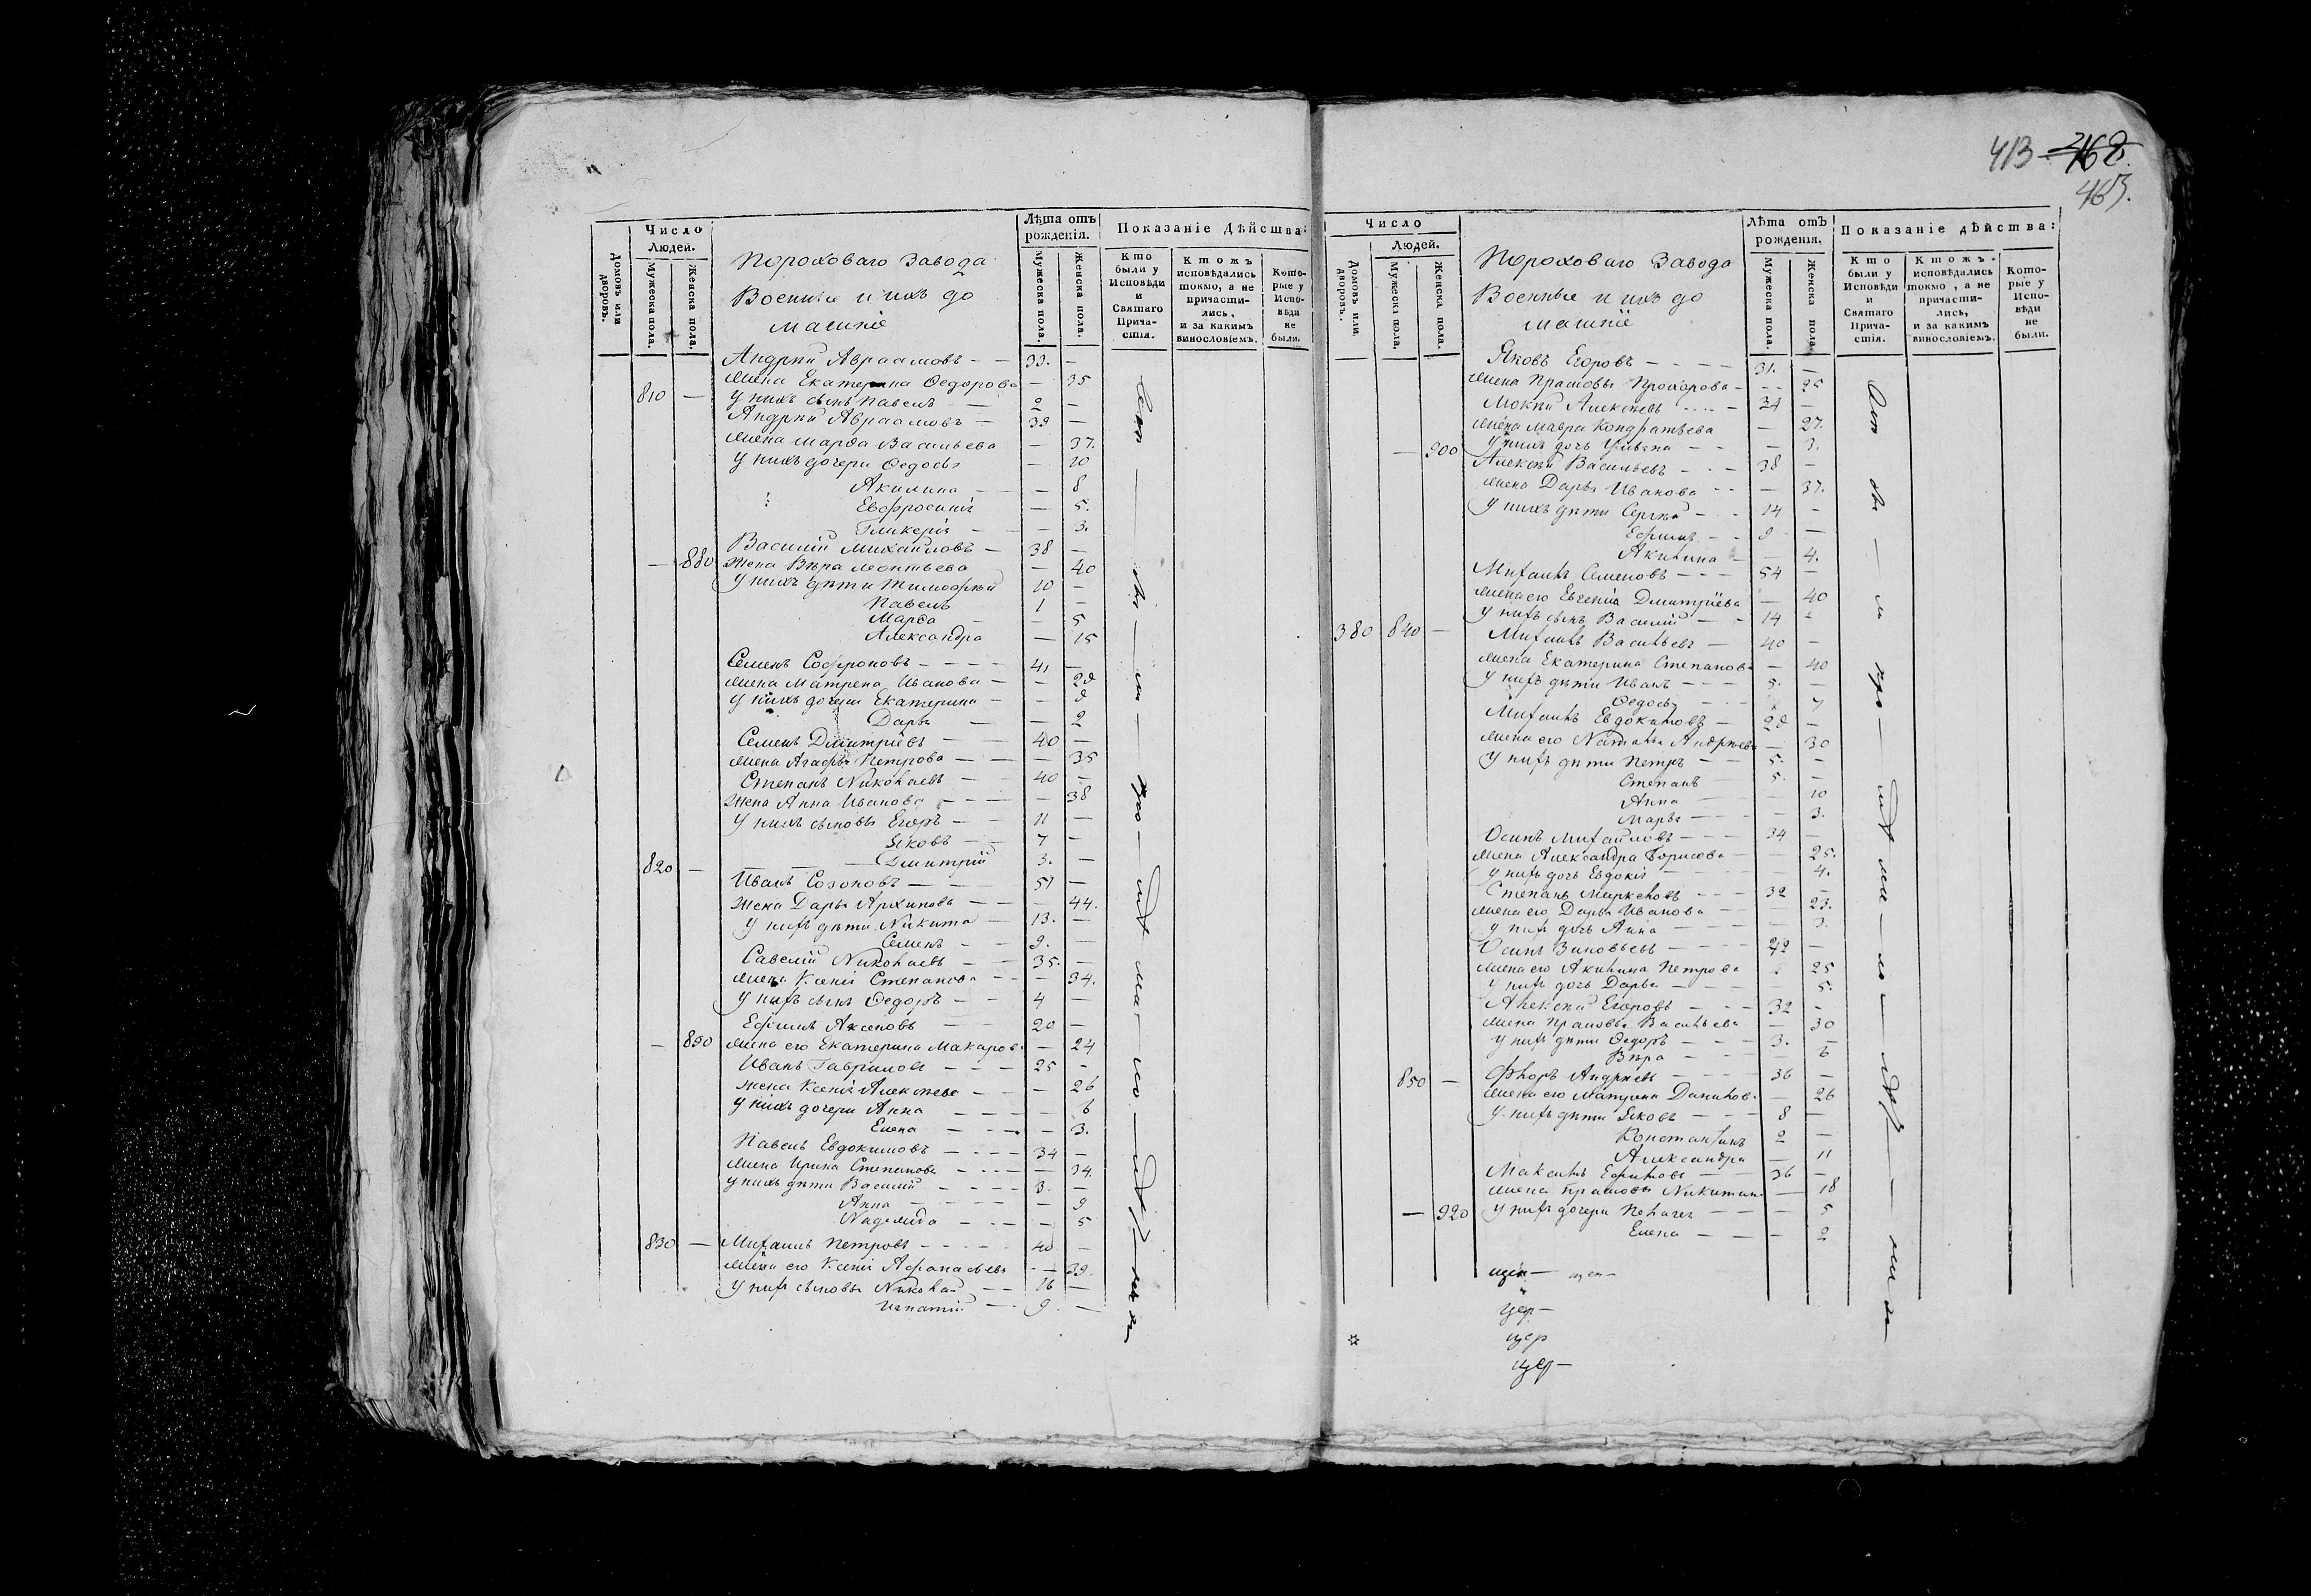 413 468.
463.
Число
Людей.
Домовъ или дворовъ.
Мужеска пола.
Женска пола.
Лѣта отъ рожденія.
Мужеска пола.
Женска пола.
Показаніе Дѣйства:
Кто были у Исповѣди и Святаго Причастія.
Ктожъ исповѣдались токмо, а не причастились, и за какимъ винословіемъ.
Которые у Исповѣди не были.
Пороховаго Завода
Военные и ихъ до
машніе
Андрей Авраамовъ — — 33. —
жена Екатерина Ѳедорова — 35
810 — у нихъ сынъ Павелъ — 2 —
Андрей Авраамовъ — 39 —
жена Марѳа Васильева — 37.
у нихъ дочери Ѳедосья — 10
Акилина — — 8
Евфросинія — 5.
Гликерія — — 3.
Василій Михайловъ — 38 —
— 880 Жена Вѣра Леонтьева — 40
у нихъ дѣти Тимоѳей 10 —
Павелъ 1 —
Марѳа — 5
Александра — 15
Семенъ Софроновъ — — — 41 —
жена Матрена Иванова — — 28
у нихъ дочери Екатерина — — 8
Дарья — — 2
Семенъ Дмитріевъ — — 40 —
жена Агафья Петрова — — — 35
Степанъ Николаевъ — — 40 —
Жена Анна Иванова — — — — 38
у нихъ сыновья Егоръ — — 11 —
Яковъ — — 7 —
820 — Дмитрій 3. —
Иванъ Созоновъ — — — 51 —
Жена Дарья Архипова — — — 44.
у нихъ дѣти Никита — 13. —
Семенъ — — 9. —
Савелій Николаевъ — — 35. —
жена Ксенія Степанова — — — 34.
у нихъ сынъ Ѳедоръ — — 4 —
Ефимъ Аксеновъ — — 20 —
— 890 жена его Екатерина Макаров. — 24
Иванъ Гавриловъ — — — 25 —
жена Ксенія Алексѣева — — — 26
у нихъ дочери Анна — — — — 6
Елена — — — — 3.
Павелъ Евдокимовъ — — — 34 —
жена Ирина Степанова — — — — 34.
у нихъ дѣти Василій — — — 3. —
Анна — — — — 9
Надежда — — — — 5
830 — Михаилъ Петровъ — — — 40 —
жена его Ксенія Афанасьева — — 39.
у нихъ сыновья Николай — — 16 —
Игнатій — — 9. —
Число
Людей.
Домовъ или дворовъ.
Мужеска пола.
Женска пола.
Лѣта отъ рожденія.
Мужеска пола.
Женска пола.
Показаніе дѣйства:
Кто были у Исповѣди и Святаго Причастія.
Ктожъ исповѣдались токмо, а не причастились, и за какимъ винословіемъ.
Которые у Исповѣди не были.
Пороховаго Завода
Военные и ихъ до
машніе
Яковъ Егоровъ — — — 31. —
жена Прасковья Прохорова — — — 25
Мокей Алексѣевъ — 34 —
жена Мавра Кондратьева — 27.
— 900 у нихъ дочь Ульяна — — — 3.
Алексѣй Васильевъ — — — 38 —
жена Дарья Иванова — — — 37.
у нихъ дѣти Сергѣй — — 14 —
Ефимъ — — 9 —
Акилина — — 4.
Михаилъ Семеновъ — — — 54 —
жена его Евгенія Дмитріева — 40
у нихъ сынъ Василій — — 14 —
380 840 — Михаилъ Васильевъ — 40 —
жена Екатерина Степанова — 40
у нихъ дѣти Иванъ — — — 5. —
Ѳедосья — — 7
Михаилъ Евдокимовъ — 28 —
жена его Наталья Андреева — 30
у нихъ дѣти Петръ — — 5. —
Степанъ — 5. —
Анна — — 10
Марья — — — 3.
Осипъ Михайловъ — — — 34 —
жена Александра Борисова — — 25.
у нихъ дочь Евдокія — — — 4.
Степанъ — — — 32 —
жена его Дарья Иванова — — — 23.
у нихъ дочь Анна — — — — 3.
Осипъ Зиновьевъ — — — 42 —
жена его Акилина Петрова 25
у нихъ дочь Дарья — — — — 5.
Алексѣй Егоровъ — — — 32 —
жена Прасковья Васильева — 30
у нихъ дѣти Ѳедоръ — — — 3. —
Вѣра — — — — 6
850 — Флоръ Андреевъ — — — 36 —
жена его Матрена Данилов. — 26
у нихъ дѣти Яковъ — — — 8 —
Константинъ 2 —
Александра — 11
Максимъ Ефимовъ — — 36 —
жена Прасковья Никитин. — 18
— 920 у нихъ дочери Пелагея — — — 5
Елена — — — 2